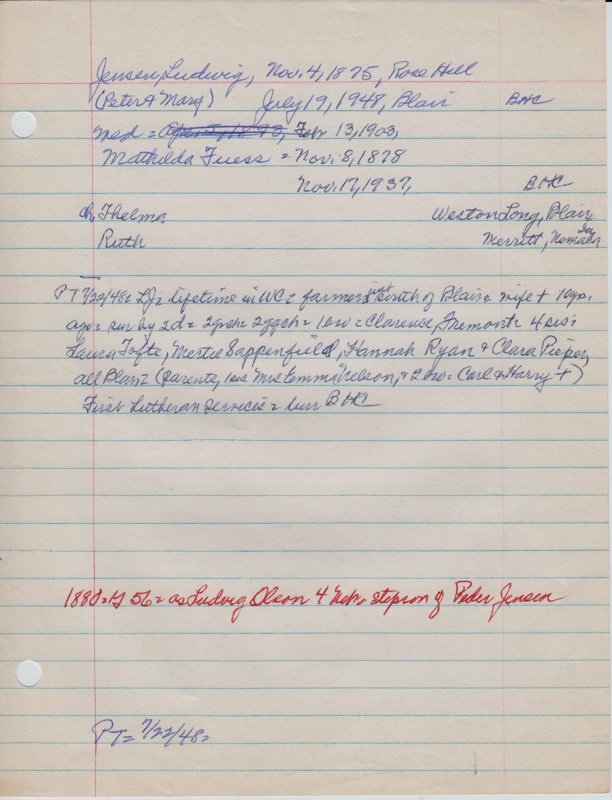 Jensen, Ludwig, Nov. 4, 1875, Rose Hill
(Peter & Mary) July 19, 1948, Blair BHC
med = Apr. 5, 1893, Feb 13, 1903,
Mathilda Fuess = Nov. 8, 1878
Nov. 17, 1937, BHC
ch, Thelma Weston Long, Blair
Ruth Merritt, Nemaha
PT 7/22/48 = LJ = lifetime in WC = farmer just south of Blair = wife + 10 yrs.
ago = sur by 2d = 2gch = 2ggch = 1 bro = Clarence, Fremont = 4 sis =
Laura Tofte, Mertie Sappenfield, Hannah Ryan & Clara Pieper,
all Blair (parents, 1 sis Mrs Emma Nelson, & 2 bro = Carl & Harry +)
First Lutheran services = bur BHC
1880 = 56 = as Ludwig Olson 4 Neb = stepson of Peder Jensen
PT = 7/22/48 =